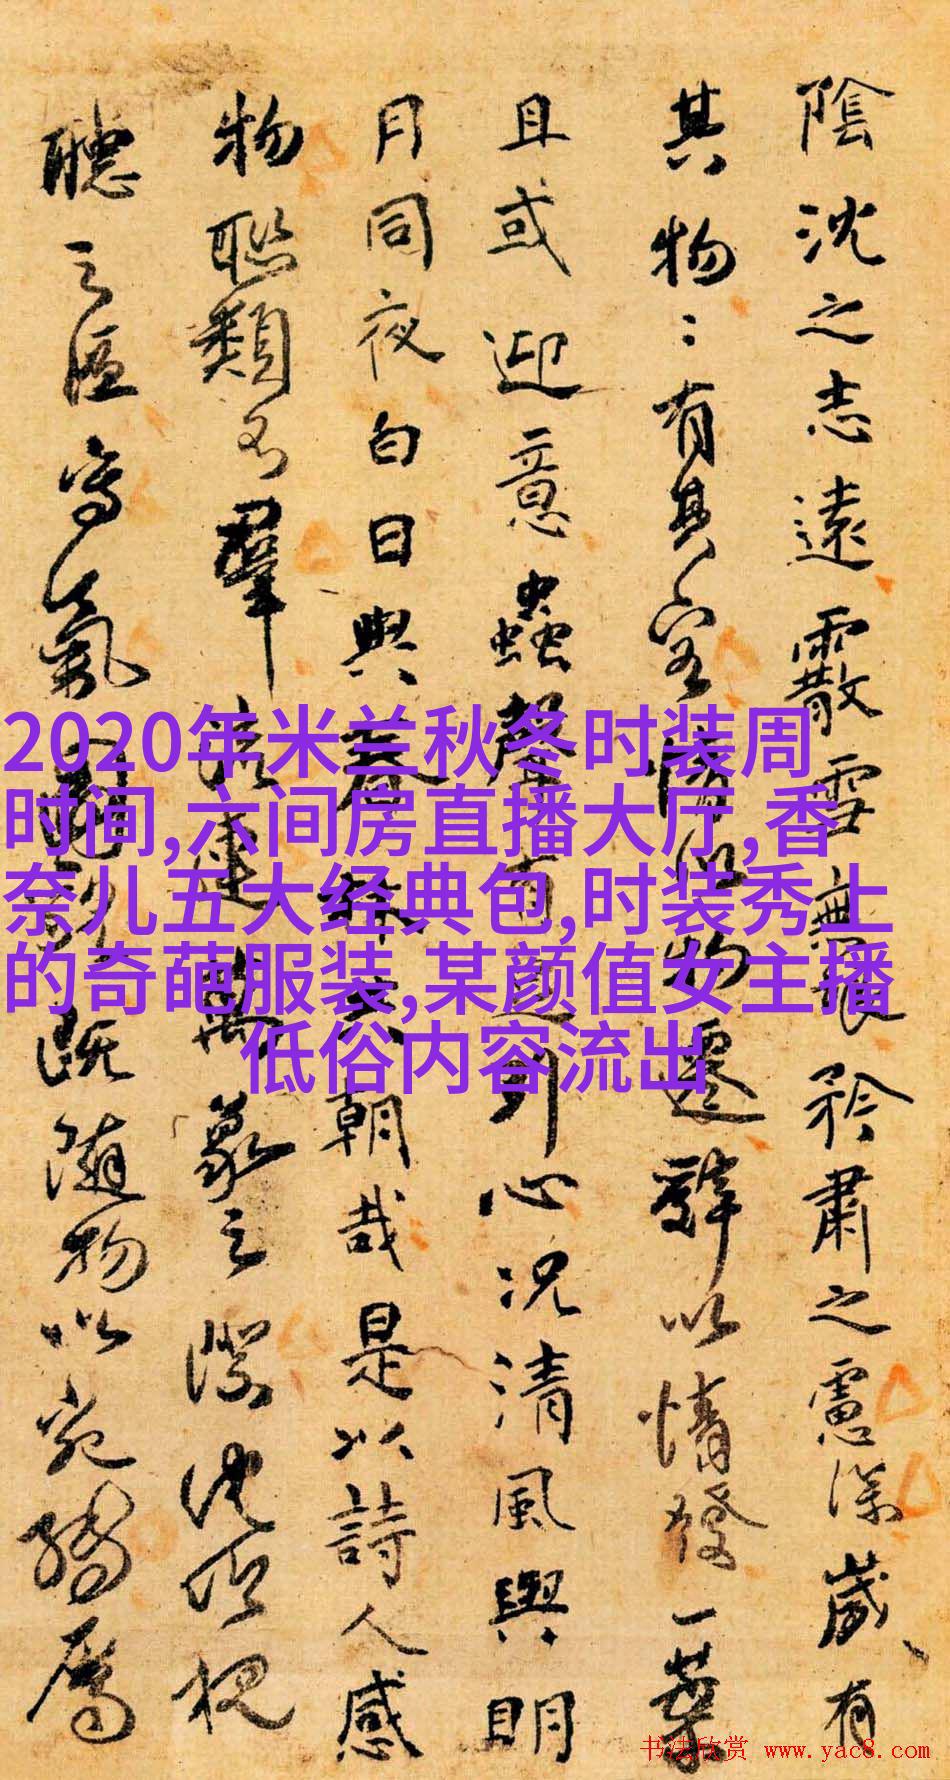 陰沈之志遠霰雪無垠矜肅之慮深歲有
其物〻有其容情以物遷辭以情發一葉
且或迎意蟲聲有足引心況清風與明
月同夜白日與春林共朝哉是以詩人感
物聯類不羣流連萬象之際沈吟視
聽之區寫氣圖貌既隨物以宛轉屬
2020年米兰秋冬时装周
时间,六间房直播大厅,香
奈儿五大经典包,时装秀上
的奇葩服装,某颜值女主播
低俗内容流出
书法欣赏 www.yac8.com